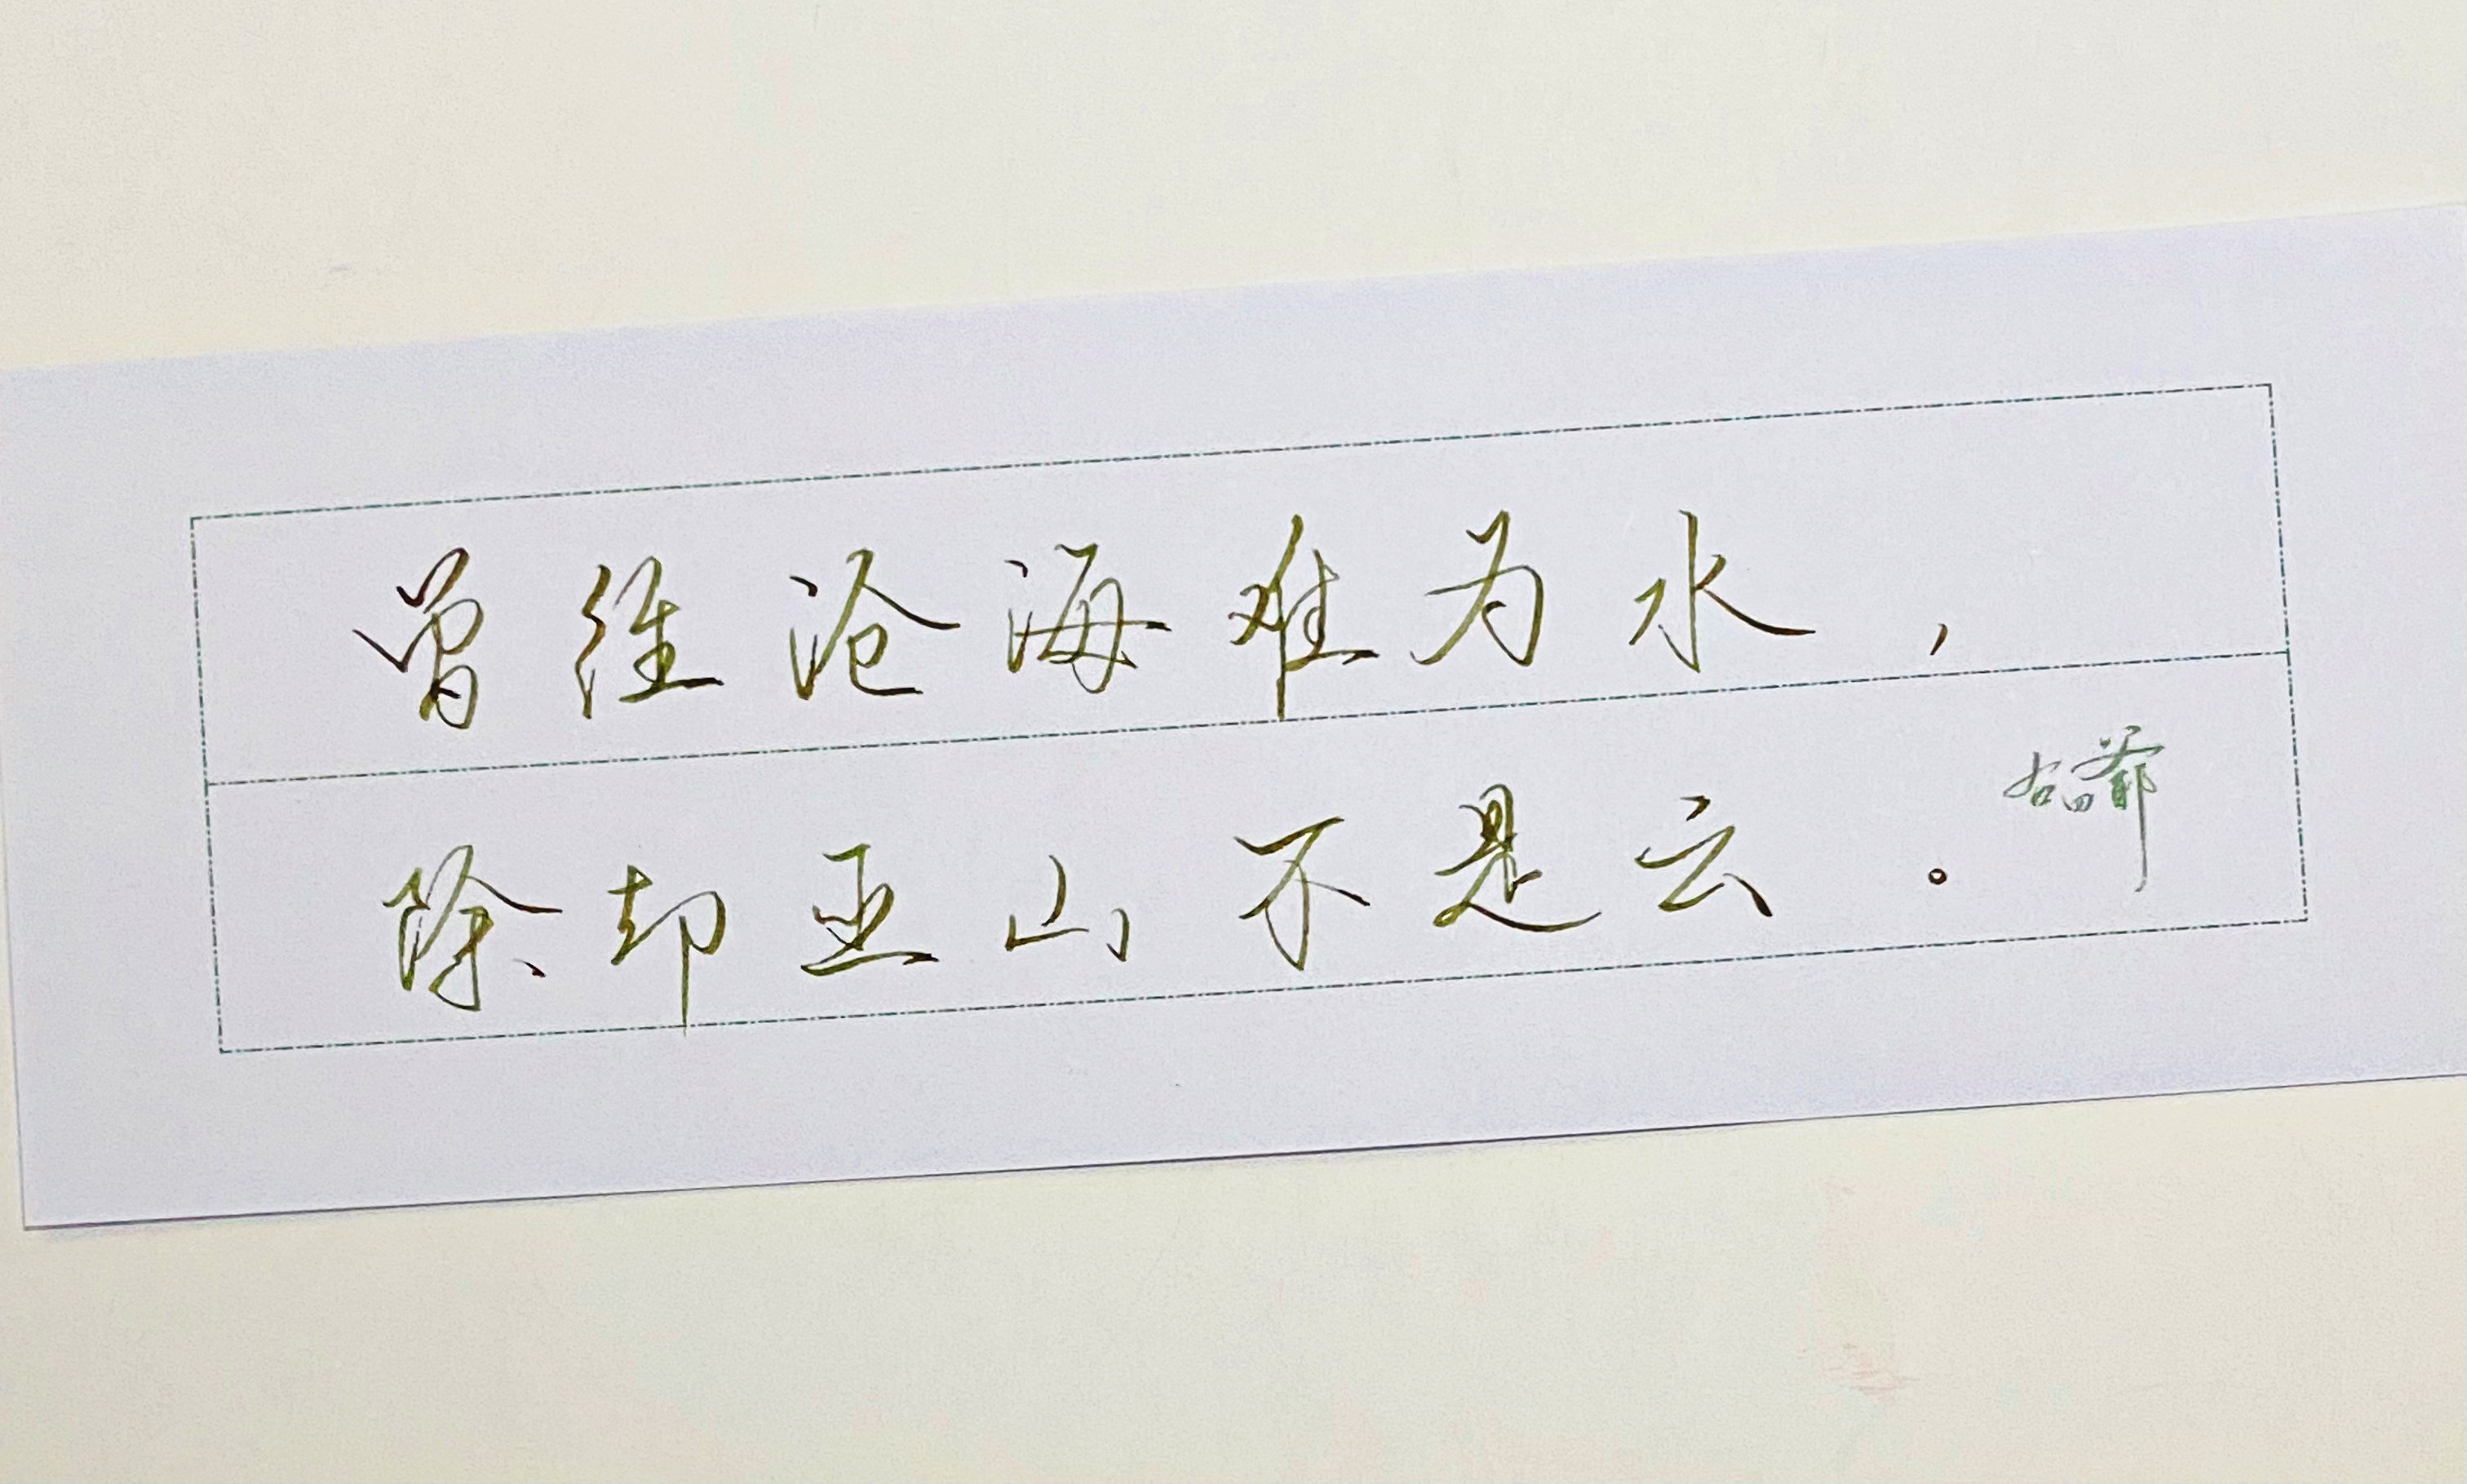 曾经沧海难为水，
除却巫山不是云。